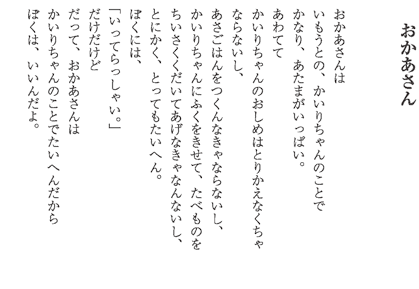 おかあさん
おかあさんは
いもうとの、かいりちゃんのことで
かなり、あたまがいっぱい。
あわてて
かいりちゃんのおしめはとりかえなくちゃ
ならないし、
あさごはんをつくんなきゃならないし、
かいりちゃんにふくをきせて、たべものを
ちいさくくだいてあげなきゃなんないし、
とにかく、とってもたいへん。
ぼくには、
「いってらっしゃい。」
だけだけど
だって、おかあさんは
かいりちゃんのことでたいへんだから
ぼくは、いいんだよ。